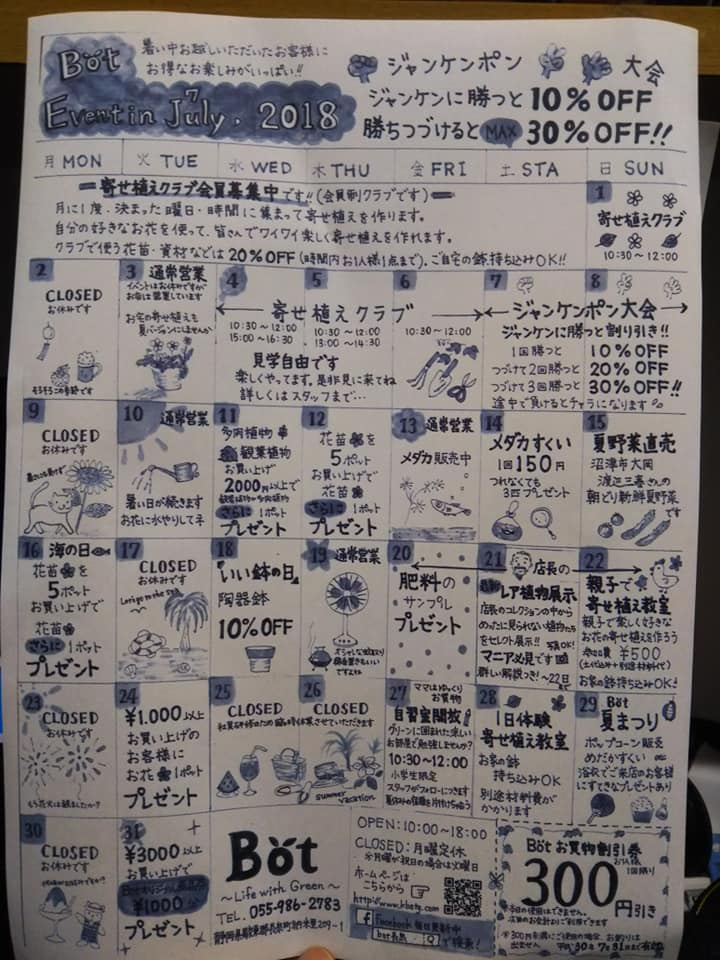 Böt
Event in July. 2018
暑い中お越しいただいたお客様に
お得なお楽しみがいっぱい!!
ジャンケンポン 大会
ジャンケンに勝つと10%OFF
勝ちつづけるとMAX 30%OFF!!
月MON 火TUE 水WED 木THU 金FRI 土STA 日SUN
寄せ植えクラブ会員募集中です!!(会員制クラブです)
月に1度、決まった曜日・時間に集まって寄せ植えを作ります。
自分の好きなお花を使って、皆さんでワイワイ楽しく寄せ植えを作れます。
クラブで使う花苗・資材などは20%OFF(時間内お1人様1点まで)、ご自宅の鉢、持ち込みOK!!
1
寄せ植えクラブ
10:30~12:00
2
CLOSED
お休みです
3 通常営業
イベントはお休みですが
お店は営業しています
お宅の寄せ植えも
夏バージョンにしませんか
4 5 6
寄せ植えクラブ
10:30~12:00 10:30~12:00 10:30~12:00
15:00~16:30 13:00~14:30
見学自由です
楽しくやってます。是非見に来てね
詳しくはスタッフまで…
7 8
ジャンケンポン大会
ジャンケンに勝つと割り引き!!
1回勝つと 10%OFF
つづけて2回勝つと 20%OFF
つづけて3回勝つと 30%OFF!!
途中で負けるとチャラになります
9
CLOSED
お休みです
10 通常営業
暑い日が続きます
お花に水やりしてネ
11
多肉植物
観葉植物
お買い上げ
2000円以上で
さらに1ポット
プレゼント
12
花苗を
5ポット
お買い上げで
花苗
さらに1ポット
プレゼント
13 通常営業
メダカ販売中
14
メダカすくい
1回150円
つれなくても
3匹プレゼント
15
夏野菜直売
沼津市大岡
渡辺三喜さんの
朝どり新鮮夏野菜
です
16 海の日
花苗を
5ポット
お買い上げで
花苗
さらに1ポット
プレゼント
17
CLOSED
お休みです
Let's go to the sea
18
いい鉢の日
陶器鉢
10%OFF
19 通常営業
20
肥料の
サンプル
プレゼント
21 店長の
レア植物展示
店長のコレクションの中から
めったに見られない植物たち
をセレクト展示!!
マニア必見です
詳しい解説つき!~22日
22
親子で
寄せ植え教室
親子で楽しく好きな
お花の寄せ植えを作ろう
参加費 ¥500
(土代込み+別途材料代)
お家の鉢持ち込みOK!
23
CLOSED
お休みです
もう花火は観ましたか?
24
¥1.000以上
お買い上げの
お客様に
お花1ポット
プレゼント
25 26
CLOSED CLOSED
社員研修のため臨時休業させていただきます
summer vacation
27 ママはゆっくり
お買物
自習室開放
グリーンに囲まれた涼しい
お部屋で勉強しませんか?
10:30~12:00
小学生限定
スタッフがフォローにつきます
夏休みの宿題を片付けちゃおう
28
1日体験
寄せ植え教室
お家の鉢
持ち込みOK
別途材料費が
かかります
29 Böt
夏まつり
ポップコーン販売
めだかすくい
浴衣でご来店のお客様
にすてきなプレゼントあり
30
CLOSED
お休みです
31
¥3000以上
お買い上げで
¥1000分
プレゼント
Böt
~Life with Green~
TEL.055-986-2783
OPEN:10:00~18:00
CLOSED:月曜定休
※月曜が祝日の場合は火曜日
ホームページは
こちらから
Facebook 毎日更新中
bot長泉 で検索!
Böt お買物割引券
お1人様
1回限り
300円引き